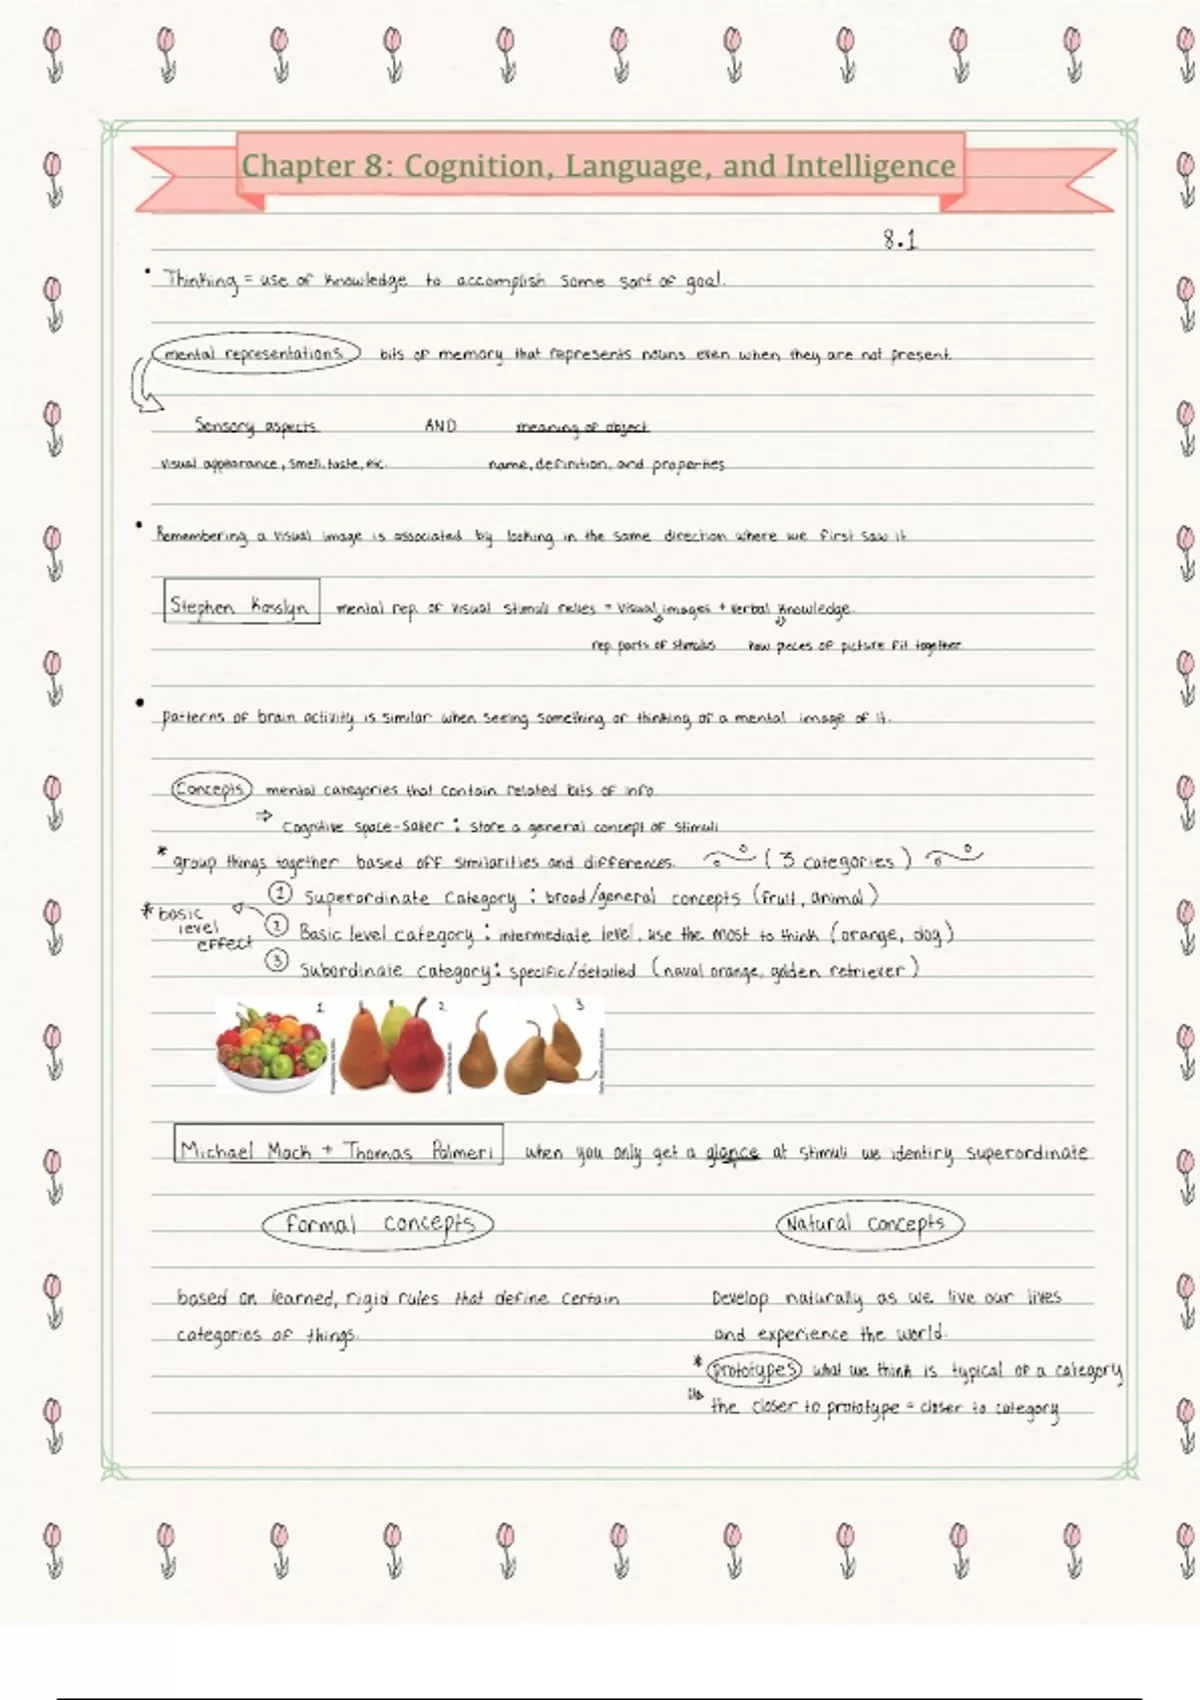 Chapter 8: Cognition, Language, and Intelligence
8.1
• Thinking = use of knowledge to accomplish some sort of goal.
mental representations bits of memory that represents nouns even when they are not present.
Sensory aspects AND meaning of object
visual appearance, smell, taste, etc. name, definition, and properties
• Remembering a visual image is associated by looking in the same direction where we first saw it
Stephen Kosslyn mental rep. of visual stimuli relies = visual images + verbal knowledge.
rep. parts of stimulus how pieces of picture fit together
• patterns of brain activity is similar when seeing something or thinking of a mental image of it.
Concepts mental categories that contain related bits of info
⇒ Cognitive space-saver : store a general concept of stimuli
* group things together based off similarities and differences. (3 categories)
① Superordinate Category : broad/general concepts (fruit, animal)
* basic level effect
② Basic level category : intermediate level, use the most to think (orange, dog)
③ Subordinate category: specific/detailed (naval orange, golden retriever)
1 2 3
Michael Mack + Thomas Palmeri when you only get a glance at stimuli we identify superordinate
formal concepts Natural concepts
based on learned, rigid rules that define certain Develop naturally as we live our lives
categories of things. and experience the world.
* prototypes what we think is typical of a category
↳ the closer to prototype = closer to category